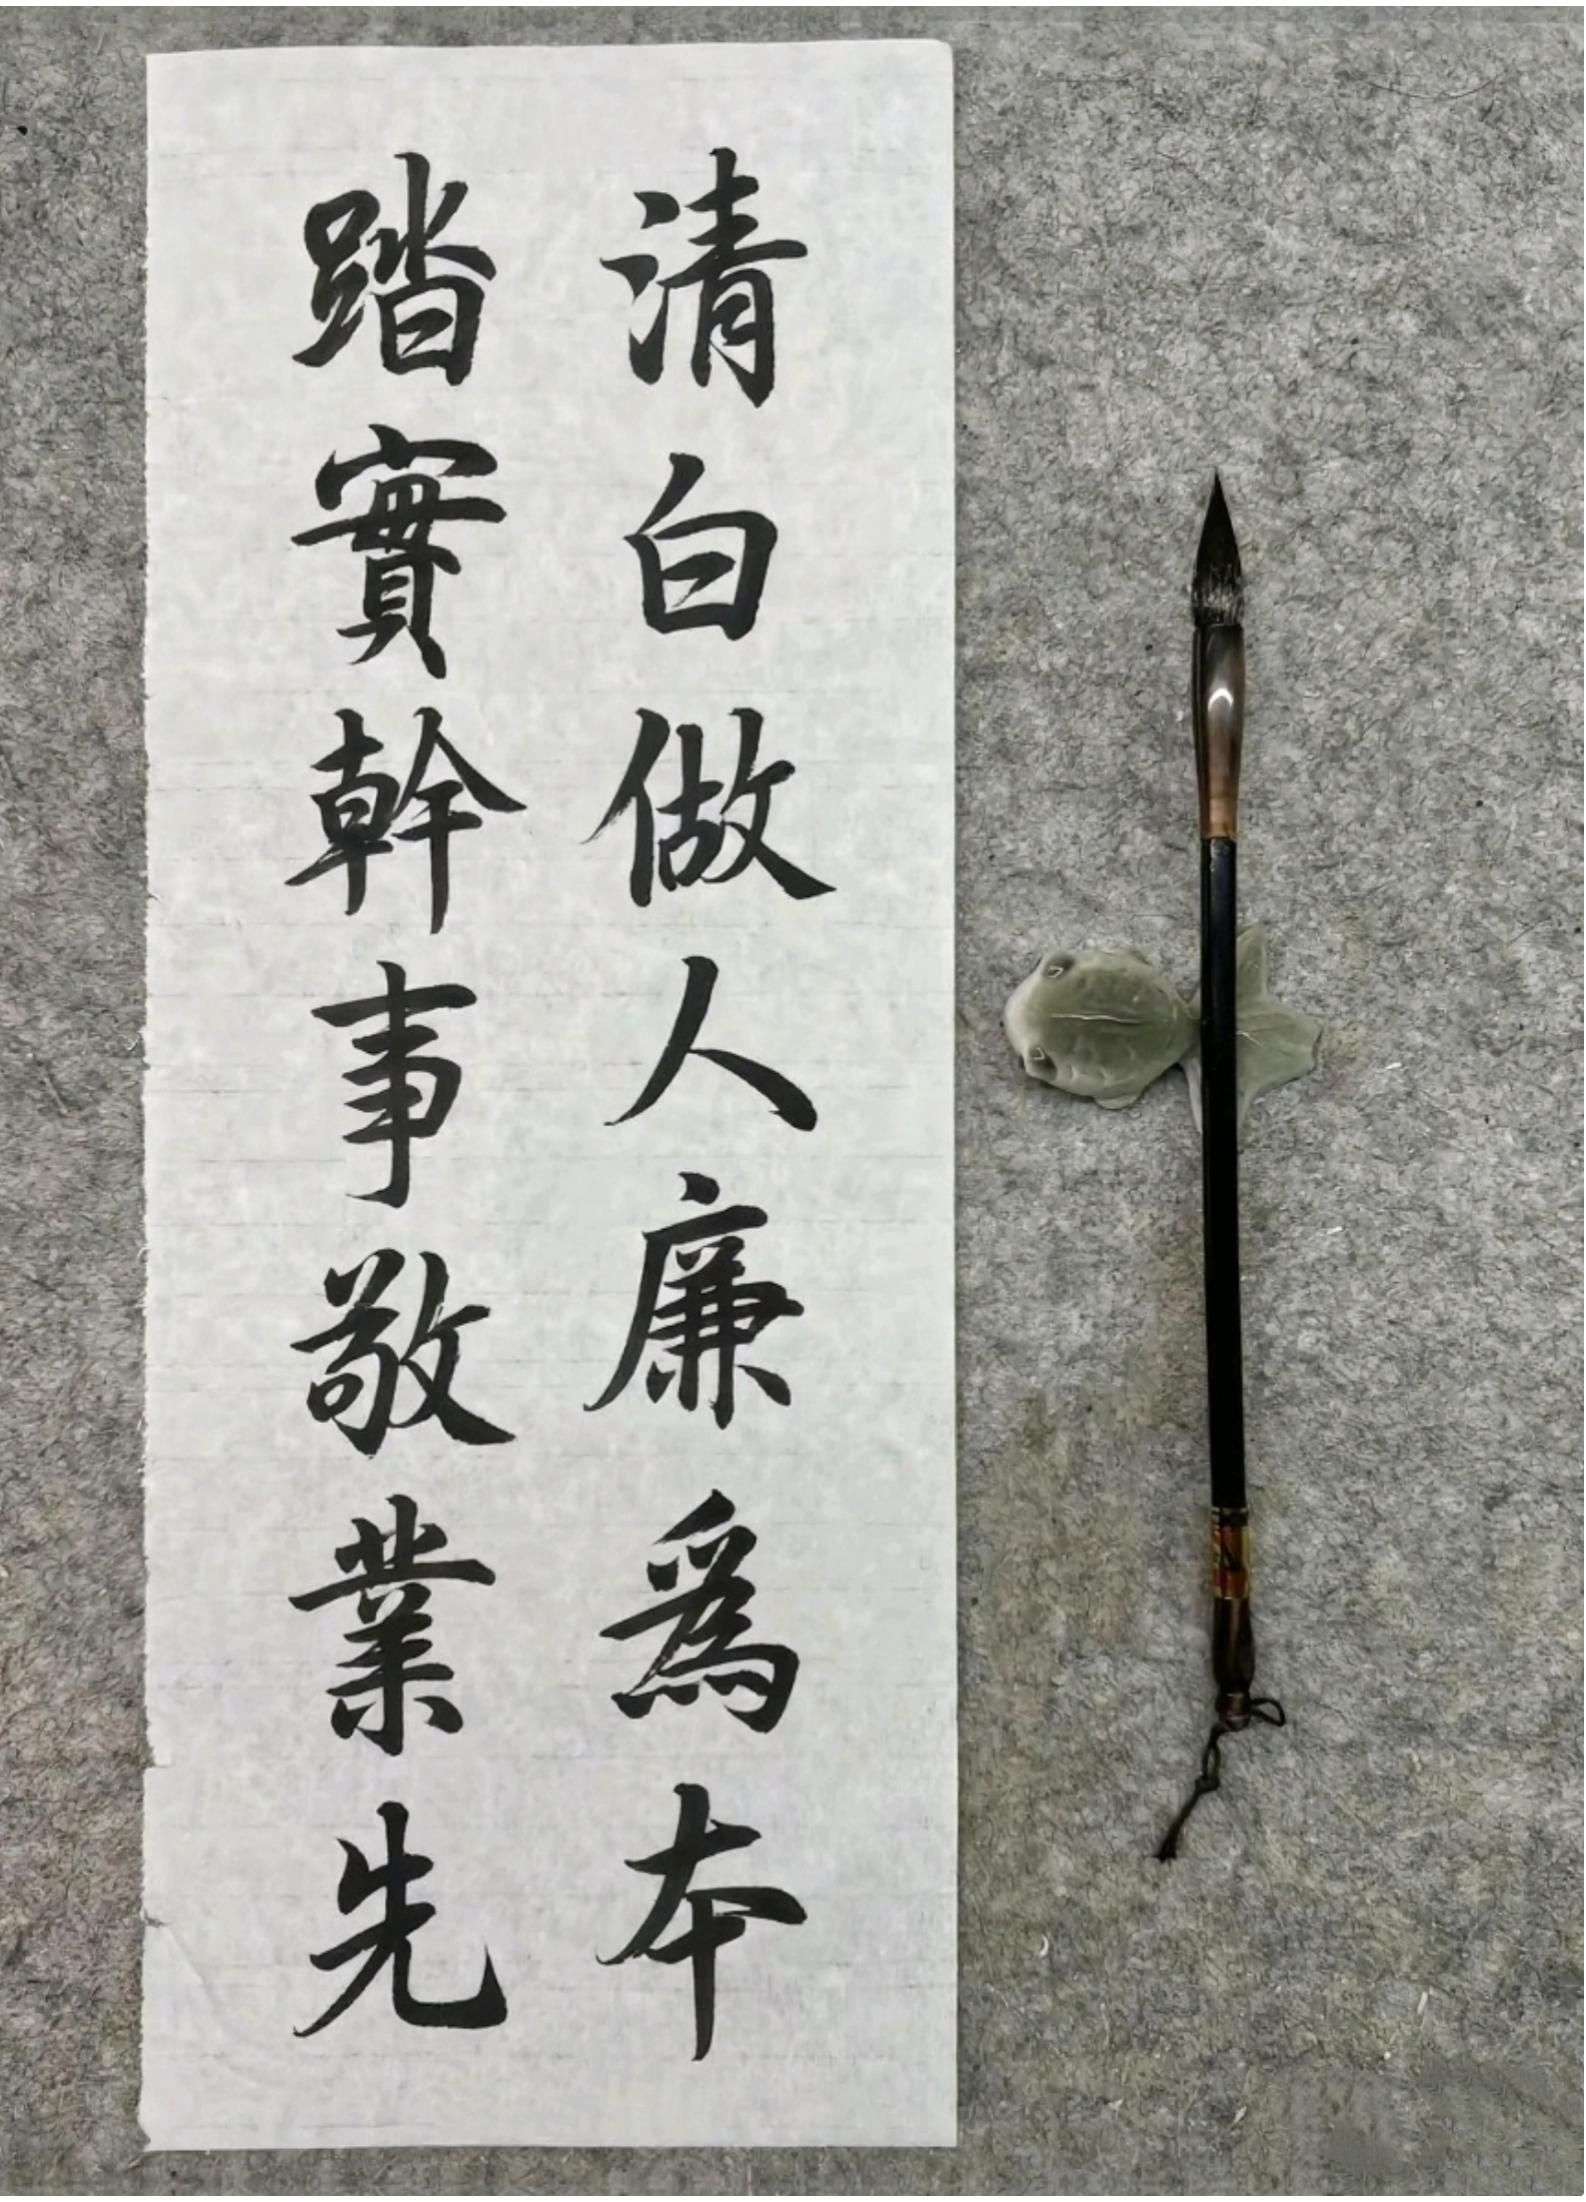 清白做人廉爲本
踏實幹事敬業先